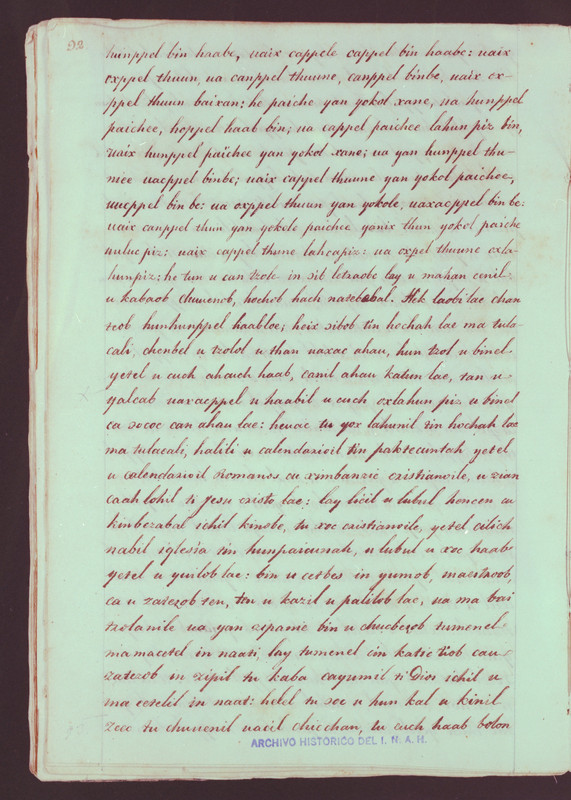 92
hunppel bin haabe, uaix cappele cappel bin haabe: uaix
oxppel thuun, ua canppel thuune, canppel binbe, uaix ox-
ppel thuun baixan: he paiche yan yokol xane, ua hunppel
paichee, hoppel haab bin; ua cappel paichee lahun piz bin,
uaix hunppel paichee yan yokol xane; ua yan hunppel thu-
nice uacppel binbe; uaix cappel thuune yan yokol paichee,
uucppel bin be: ua oxppel thuun yan yokole, uaxacppel bin be:
uaix canppel thun yan yokole paichee yanix thun yokol paiche
buluc piz: uaix cappel thune lahcapiz: ua oxpel thuune oxla-
hunpiz: he tun u can tzolc in sib letraobe lay u mahan cenil
u kabaob chuuenob, hochob hach natebebal. Hek laobi lae chan
ceob hunhunppel haabloe; heix sibob tin hochah lae ma tula-
cali, chenbel u tzolol u than uaxac ahau, hun tzol u binel
yetel u cuch ahauch haab, camil ahau katun lae, tan u
yalcab uaxacppel u haabil u cuch oxlahun piz u binel
ca zococ can ahau lae: heuac tu yox lahunil tin hochah lae
ma tulacali, halili u calendarioil tin paktecuntah yetel
u calendarioil Romanos cu ximbanzic cristianoile, u zian
caah lohil ti Jesu cristo lae: lay licil u lubul hencen cu
kinbezabal ichil kinobe, tu xoc cristianoile, yetel cilich
nabil iglesia tin hunpaicunah, u lubul u xoc haab
yetel u yuilob lae: bin u cetbes in yumob, maestroob,
ca u zatezob ten, tin u kazil u palilob lae, ua ma bai
tzolanile ua yan zipanie bin u chucbezob tumenel
ma macetel in naati, lay tumenel cin katic tiob cau
zatezob in zipil tu kaba cayumil ti Dios ichil u
ma cetelil in naat: helel tu soc u hun kal u kinil
zec tu chumenil uacil chicchan, tu cuch haab bolon
ARCHIVO HISTORICO DEL I. N. A. H.